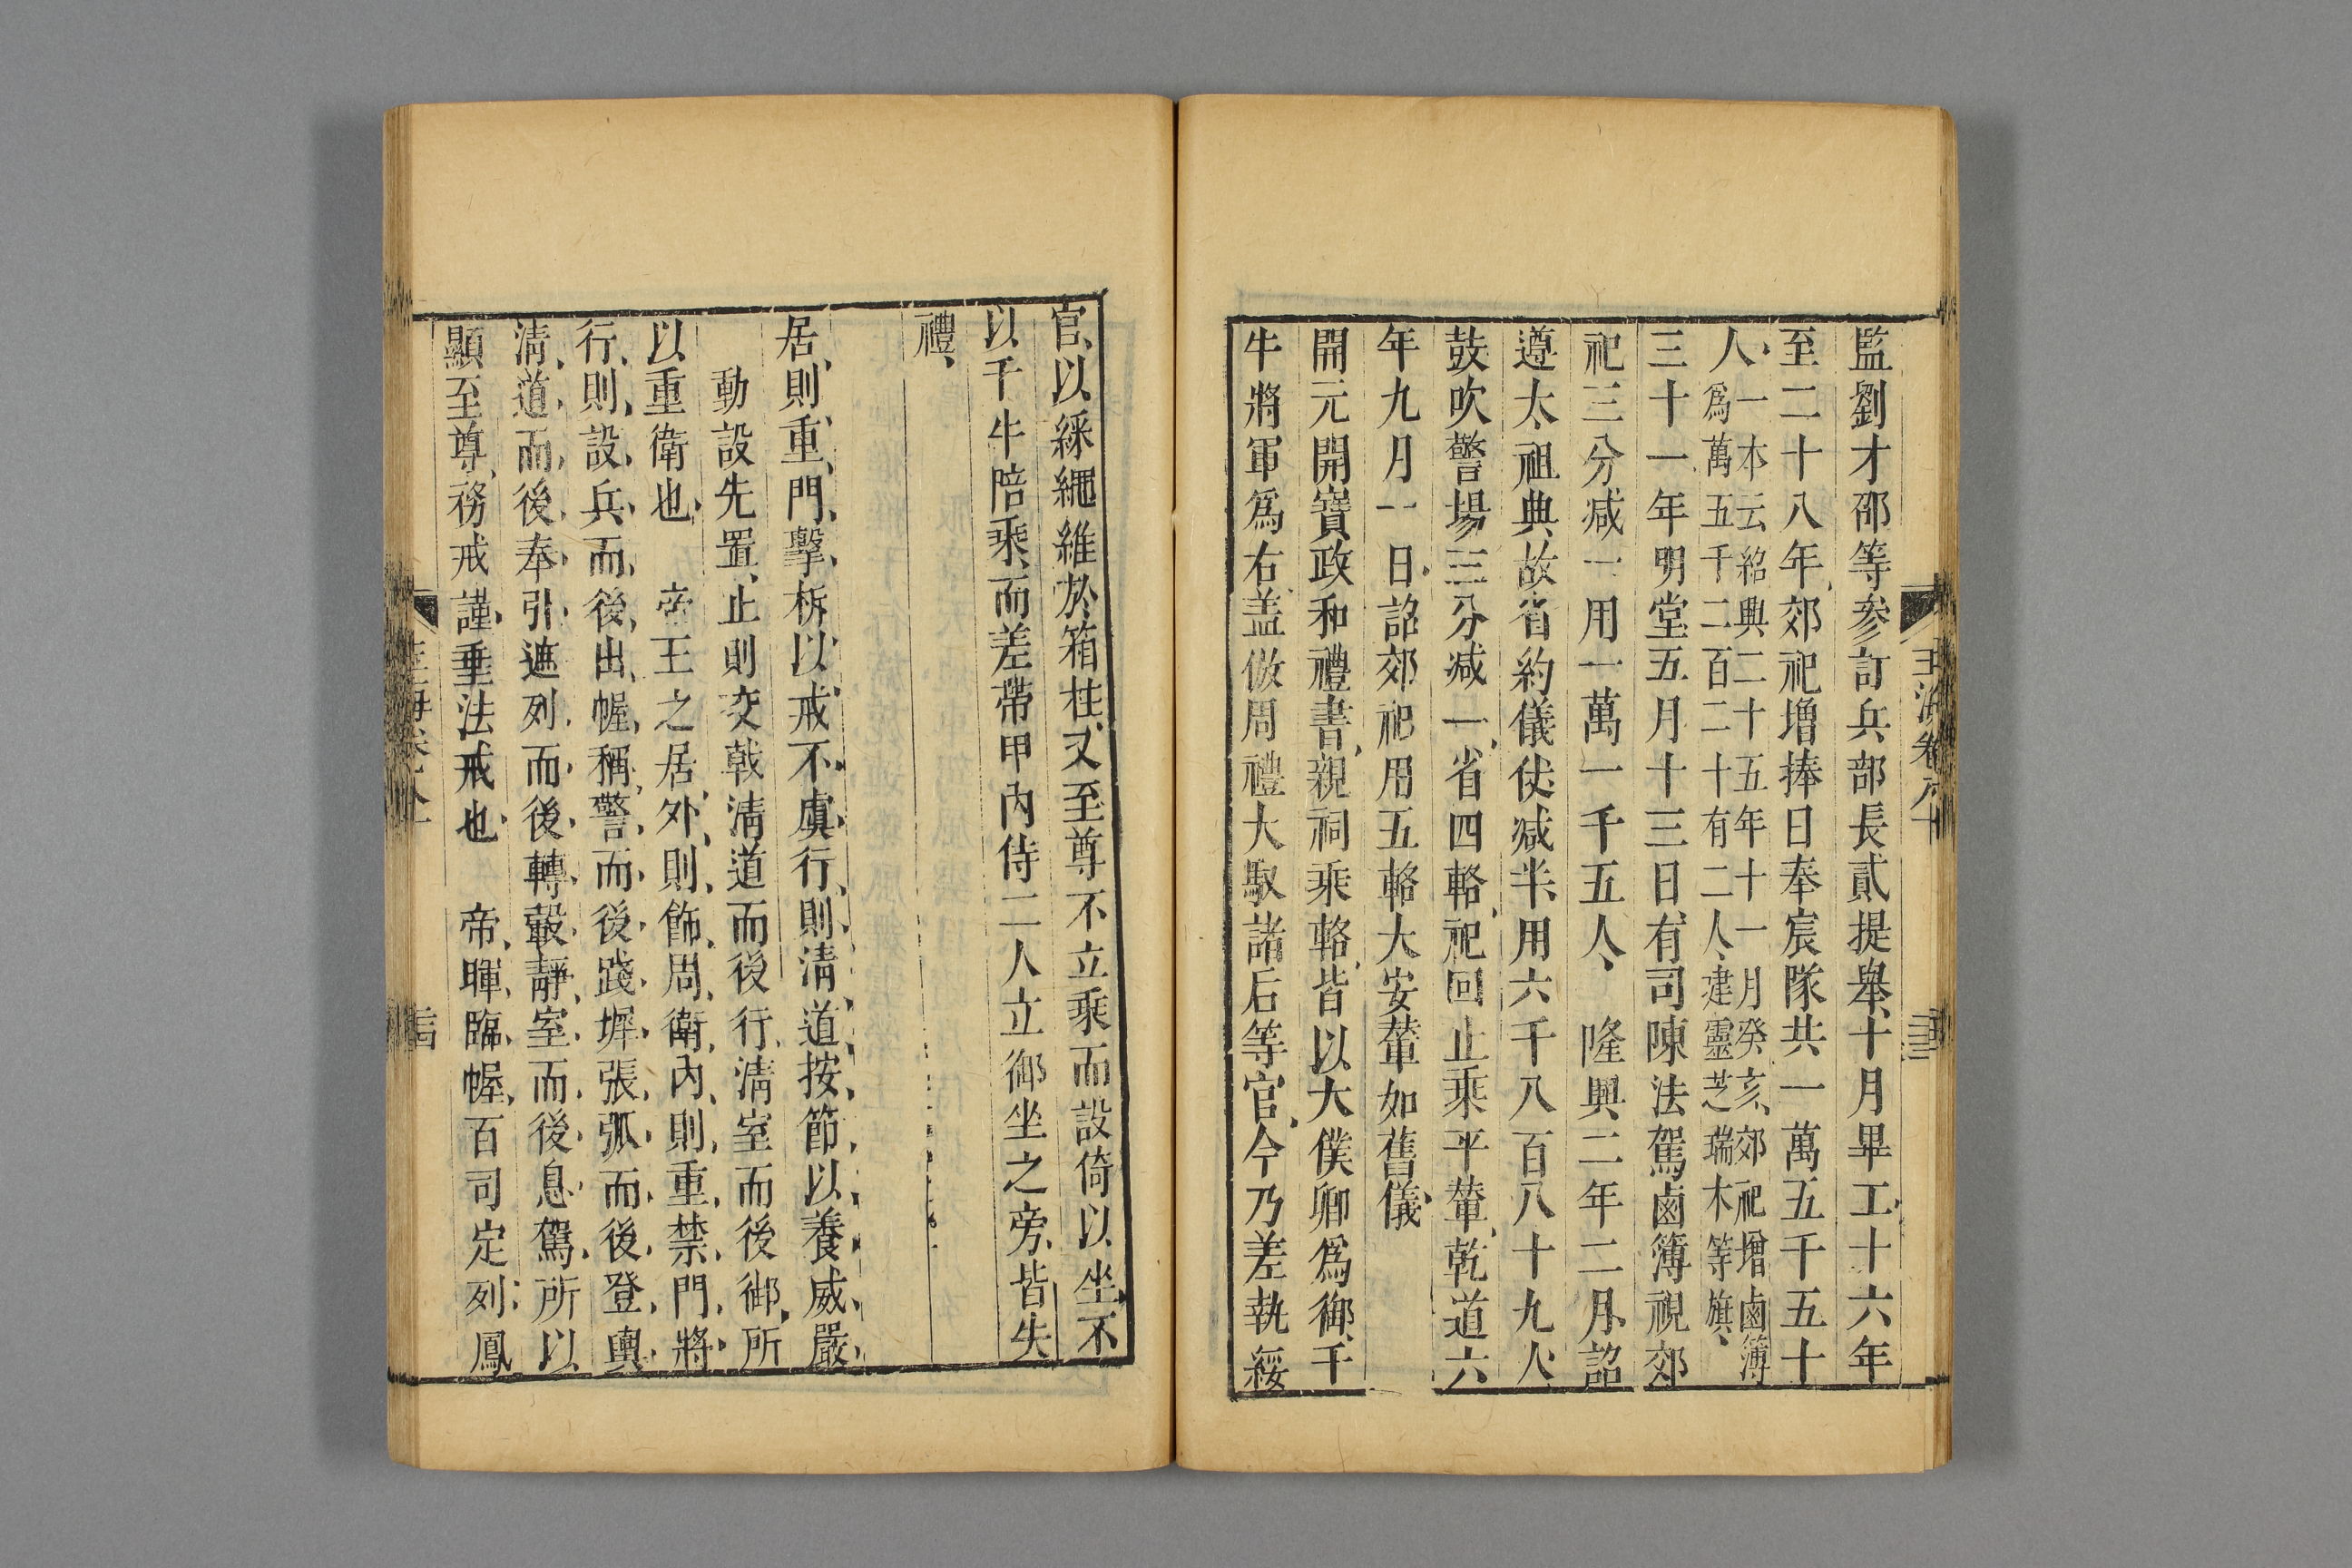 監劉才邵等參訂兵部長貳提舉十月畢工十六年
至二十八年郊祀増捧日奉宸隊共一萬五千五十
人一本云紹興二十五年十一月癸亥郊祀增鹵簿
爲萬五千二百二十有二人建靈芝瑞木等旗
三十一年明堂五月十三日有司陳法駕鹵簿視郊
祀三分减一用一萬一千五人 隆興二年二月詔
遵太祖典故省約儀仗减半用六千八百八十九人
鼓吹警場三分减一省四輅祀回止乘平輦乾道六
年九月一日詔郊祀用五輅大安輦如舊儀
開元開寶政和禮書親祠乘輅皆以大僕卿爲御千
牛將軍爲右盖倣周禮大馭諸右等官今乃差執綏
官以綵繩維於箱柱又至尊不立乘而設倚以坐不
以千牛陪乘而差帶甲内侍二人立御坐之旁皆失
禮
居則重門擊柝以戒不虞行則清道按節以養威嚴
動設先置止則交戟清道而後行清室而後御所
以重衛也 帝王之居外則飾周衛内則重禁門將
行則設兵而後出幄稱警而後踐墀張弧而後登輿
清道而後奉引遮列而後轉轂靜室而後息駕所以
顯至尊務戒謹垂法戒也 帝暉臨幄百司定列鳳
玉海卷八十